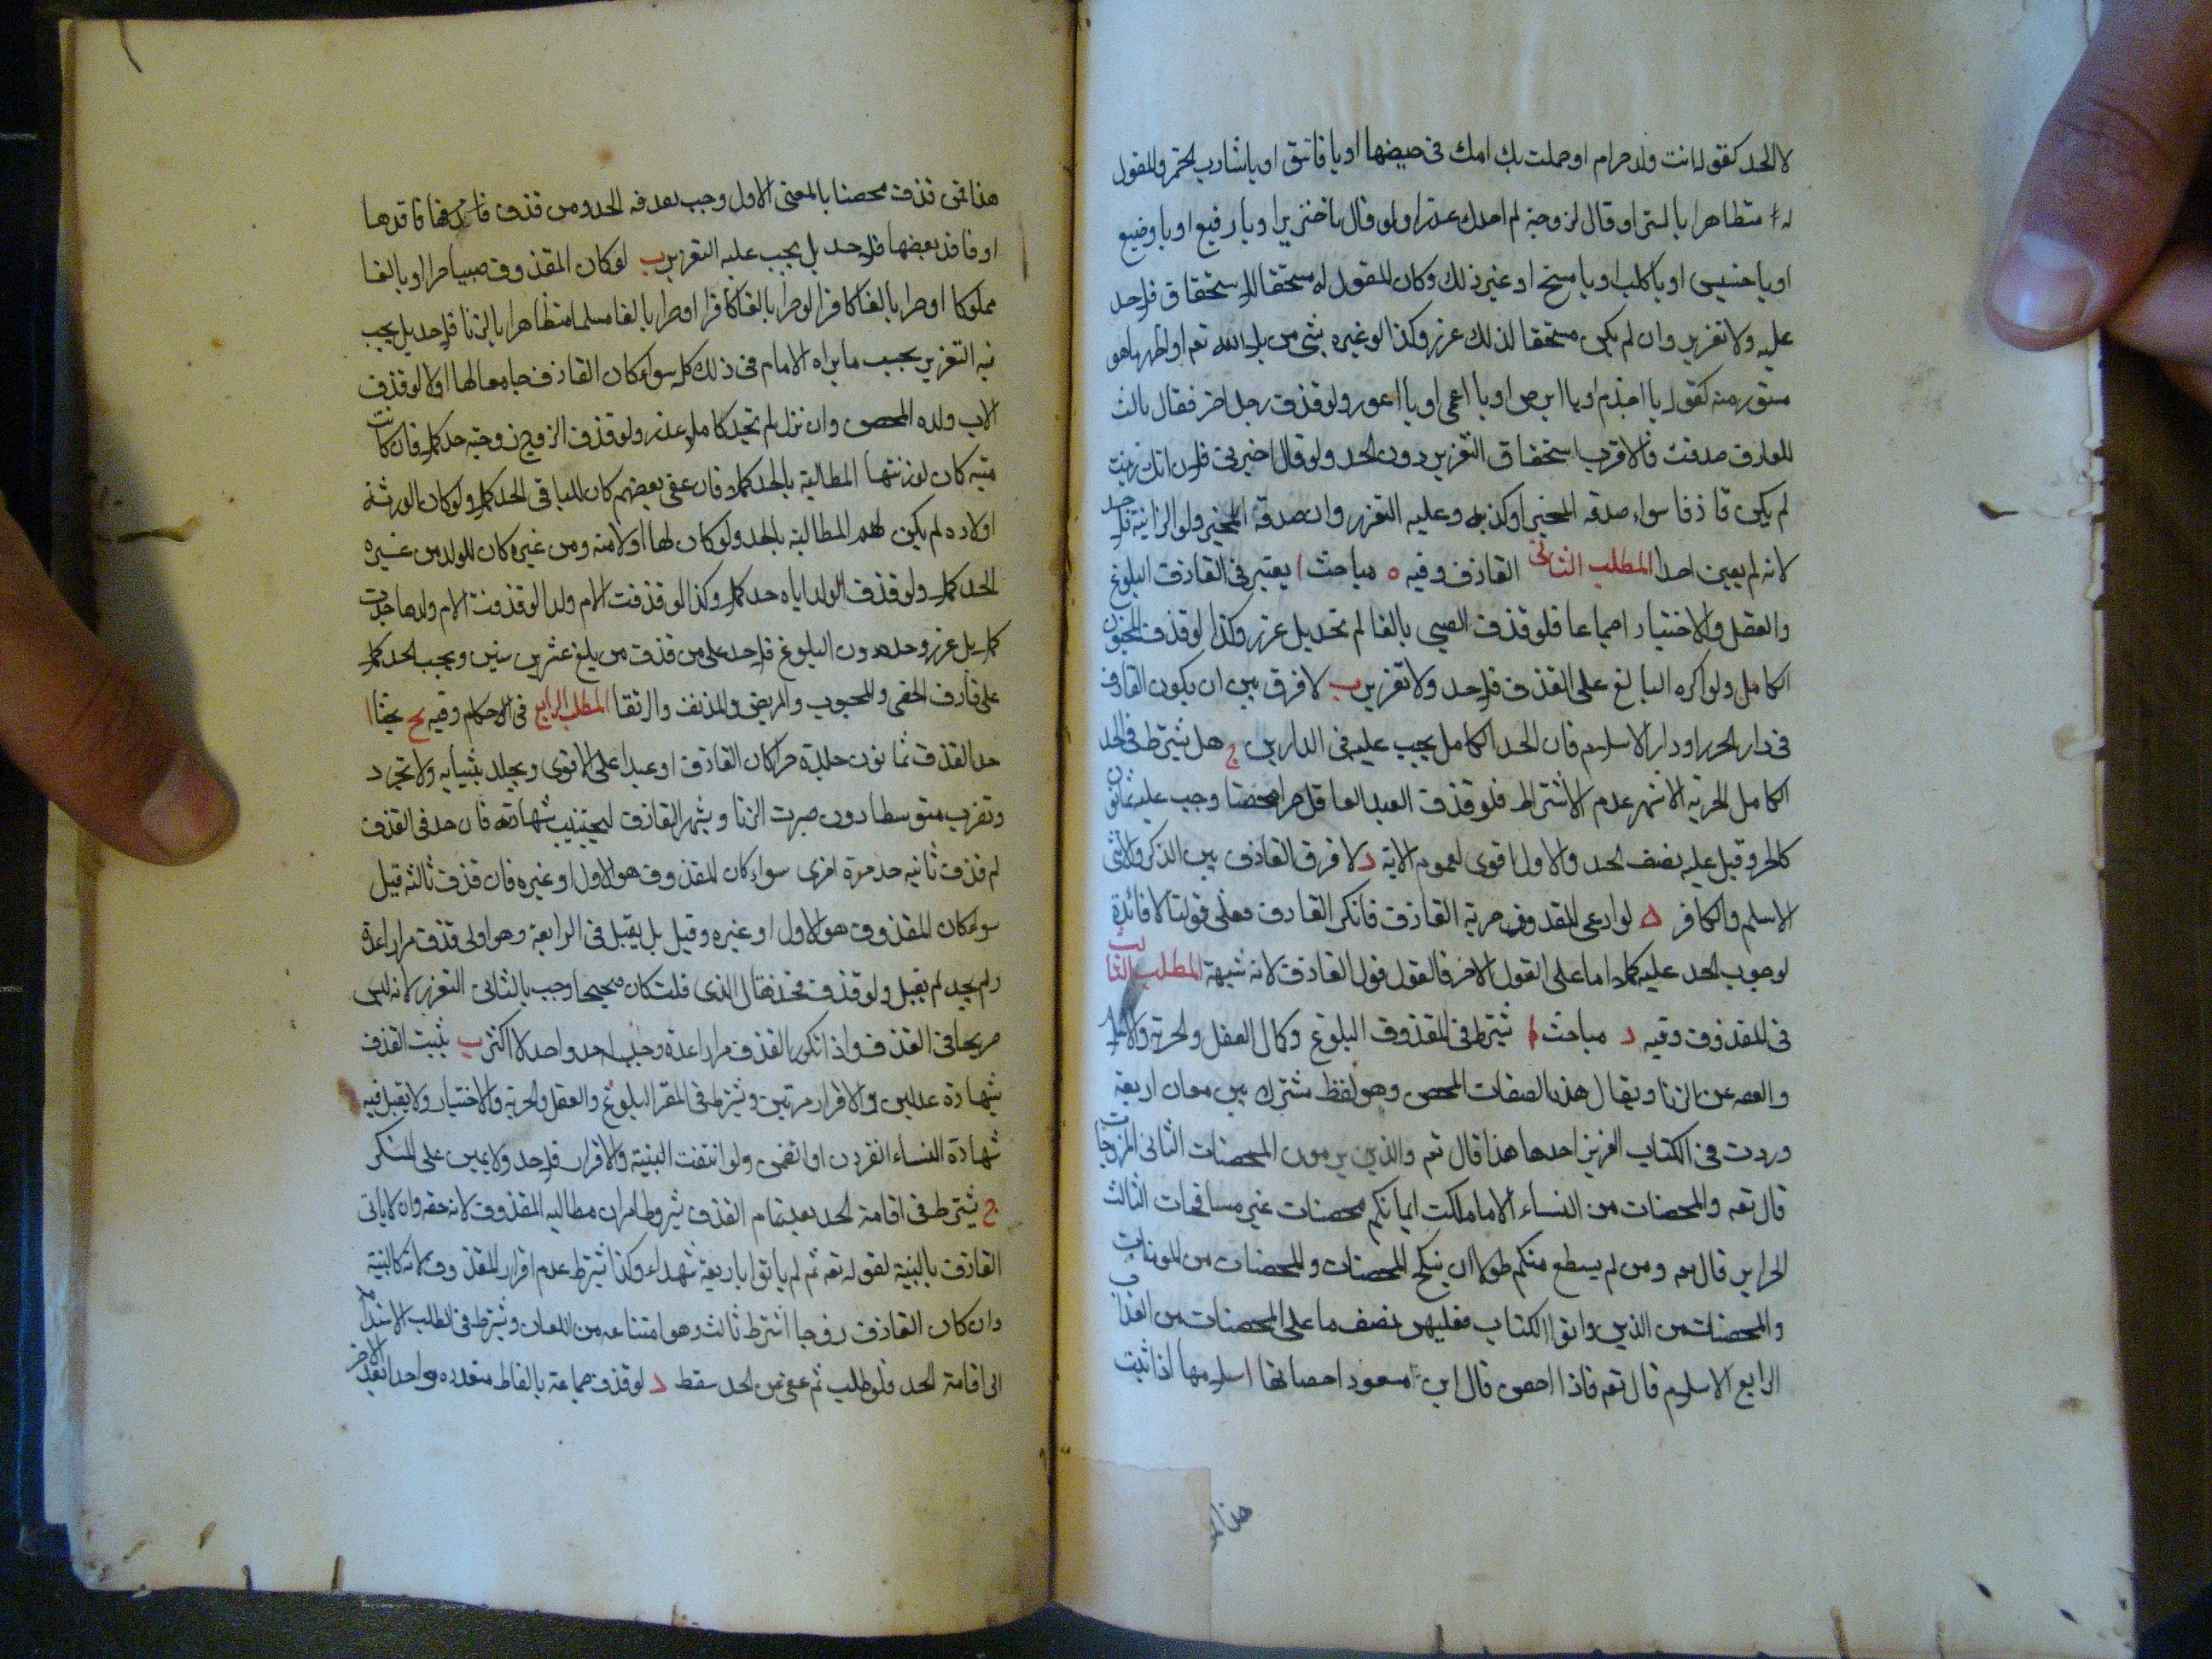 لا الحد كقوله انت ولد حرام او حملت بك امك فى حيضها او يا فاسق او يا شارب الخمر والمقول
له متظاهرا بالستر او قال لزوجته لم اجدك عذرا ولو قال يا خنزير او يا رفيع او يا وضيع
او يا خسيس او يا كلب او يا مسخ او غير ذلك وكان المقول له مستحقا للاستحقاق فلا حد
عليه ولا تعزير وان لم يكن مستحقا لذلك عزر وكذا لو عيره بشى من بلاء الله تعم او اظهر ما هو
مستور منه كقوله يا اجذم او يا ابرص او يا اعمى او يا اعور ولو قذف رجل اخر فقال ثالث
للقاذف صدقت فالاقرب استحقاق التعزير دون الحد ولو قال اخبرنى فلان انك زنيت
لم يكن قاذفا سواء صدقه المخبر او كذبه وعليه التعزير وان صدقه المخبر ولو الزانية فلا حد
لانه لم يعين احدا المطلب الثانى القاذف وفيه ه مباحث ا يعتبر فى القاذف البلوغ
والعقل والاختيار اجماعا فلو قذف الصبى بالغا لم تحد بل عزر وكذا لو قذف المجنون
الكامل ولو اكره البالغ على القذف فلا حد ولا تعزير ب لا فرق بين ان يكون القاذف
فى دار الحرب او دار الاسلام فان الحد الكامل يجب عليه فى الدارين ج هل يشترط فى الحد
الكامل الحرية الاشهر عدم الاشتراط فلو قذف العبد العاقل حرا محصنا وجب عليه ثمانون
كالحر وقيل عليه نصف الحد والاول اقوى لعموم الاية د لا فرق القاذف بين الذكر والانثى
الاسلم والكافر ه لو ادعى المقذوف حرية القاذف فانكر القاذف فعلى قولنا لا فائدة
لوجوب الحد عليه كملا اما على القول الاخر فالقول قول القاذف لانه شبهة المطلب الثالث
فى المقذوف وفيه د مباحث ا يشترط فى المقذوف البلوغ وكمال العقل والحرية والاسلام
والعفه عن الزنا ويقال لهذه الصفات المحصن وهو لفظ مشترك بين معان اربعة
وردت فى الكتاب العزيز احدها هذا قال تعم والذين يرمون المحصنات الثانى المزوجات
قال تعه والمحصنات من النساء الا ما ملكت ايمانكم محصنات غير مسافحات الثالث
الحراير قال تعم ومن لم يستطع منكم طولا ان ينكح المحصنات والمحصنات من المومنات
والمحصنات من الذين اوتوا الكتاب فعليهن نصف ما على المحصنات من العذاب
الرابع الاسلام قال تعم فاذا احصن قال ابن مسعود احصانها اسلامها اذا ثبت
هذا
هذا فمن قذف محصنا بالمعنى الاول وجب بقذفه الحد ومن قذف فاقدها
او فاقد بعضها فلا حد بل يجب عليه التعزير ب لو كان المقذوف صبيا حرا او بالغا
مملوكا او حرا بالغا كافرا او حرا بالغا مسلما متظاهرا بالزنا فلا حد بل يجب
فيه التعزير بحسب ما يراه الامام فى ذلك كله سواء كان القاذف جامعا لها اولا ولو قذف
الاب ولده المحصن وان نزل لم تحد كاملا وعزر ولو قذف الزوج زوجته حد كملا فان كانت
ميته كان لورثتها المطالبة بالحد كملا فان عفى بعضهم كان للباقى الحد كملا ولو كان الورثة
اولاده لم يكن لهم المطالبة بالحد ولو كان لها اولاد منه ومن غيره كان للولد من غيره
الحد كملا ولو قذف الولد اباه حد كملا وكذا لو قذفت الام ولدا لو قذفت الام ولدها حدت
كملا بل عزر وحد دون البلوغ فلا حد على من قذف من بلغ عشرين سنين ويجب الحد كملا
على قاذف الخصى والمجبوب والمريض والمدنف والرتقا المطلب الرابع فى الاحكام وفيه يح بحثا ا
حد القذف ثمانون جلدة حرا كان القاذف او عبدا على الاقوى ويجلد بثيابه ولا تجرد
وتضرب متوسطا دون ضرب الزنا ويشهر القاذف ليجتنب شهادته فان حد فى القذف
ثم قذف ثانيه حد مرة اخرى سواء كان المقذوف هو الاول او غيره فان قذف ثالثه قيل
سواء كان المقذوف هو الاول او غيره وقيل بل يقتل فى الرابعة وهو اولى قذف مرارا عدة
ولم يحد لم يقتل ولو قذف فحد فقال الذى قلت كان صحيحا وجب بالثانى التعزير لانه ليس
صريحا فى القذف واذا تكرر القذف مرارا عدة وجب حد واحد لا اكثر ب يثبت القذف
بشهادة عدلين والاقرار مرتين ويشترط فى المقر البلوغ والعقل والحرية والاختيار ولا يقبل فيه
شهادة النساء انفردن او انضمن ولو انتفت البينة والاقرار فلا حد ولا يمين على المنكر
ج يشترط فى اقامة الحد بعد تمام القذف بشروطه امران مطالبه المقذوف لانه حقه وان لا ياتى
القاذف بالبينة لقوله تعه ثم لم ياتوا باربعة شهداء وكذا يشترط عدم اقرار المقذوف لانه كالبينة
وان كان القاذف زوجا اشترط ثالث وهو امتناعه من اللعان ويشترط فى الطلب الاستدامة
الى اقامة الحد فلو طلب ثم عفى عن الحد سقط د لو قذف جماعة بالفاظ متعدده واحدا بعد الاخر